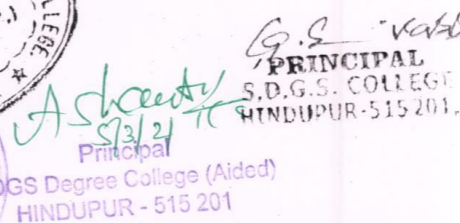 COLLEGE
PRINCIPAL
S.D.G.S. COLLEGE
HINDUPUR-515 201.
5/3/21
Principal
DGS Degree College (Aided)
HINDUPUR - 515 201